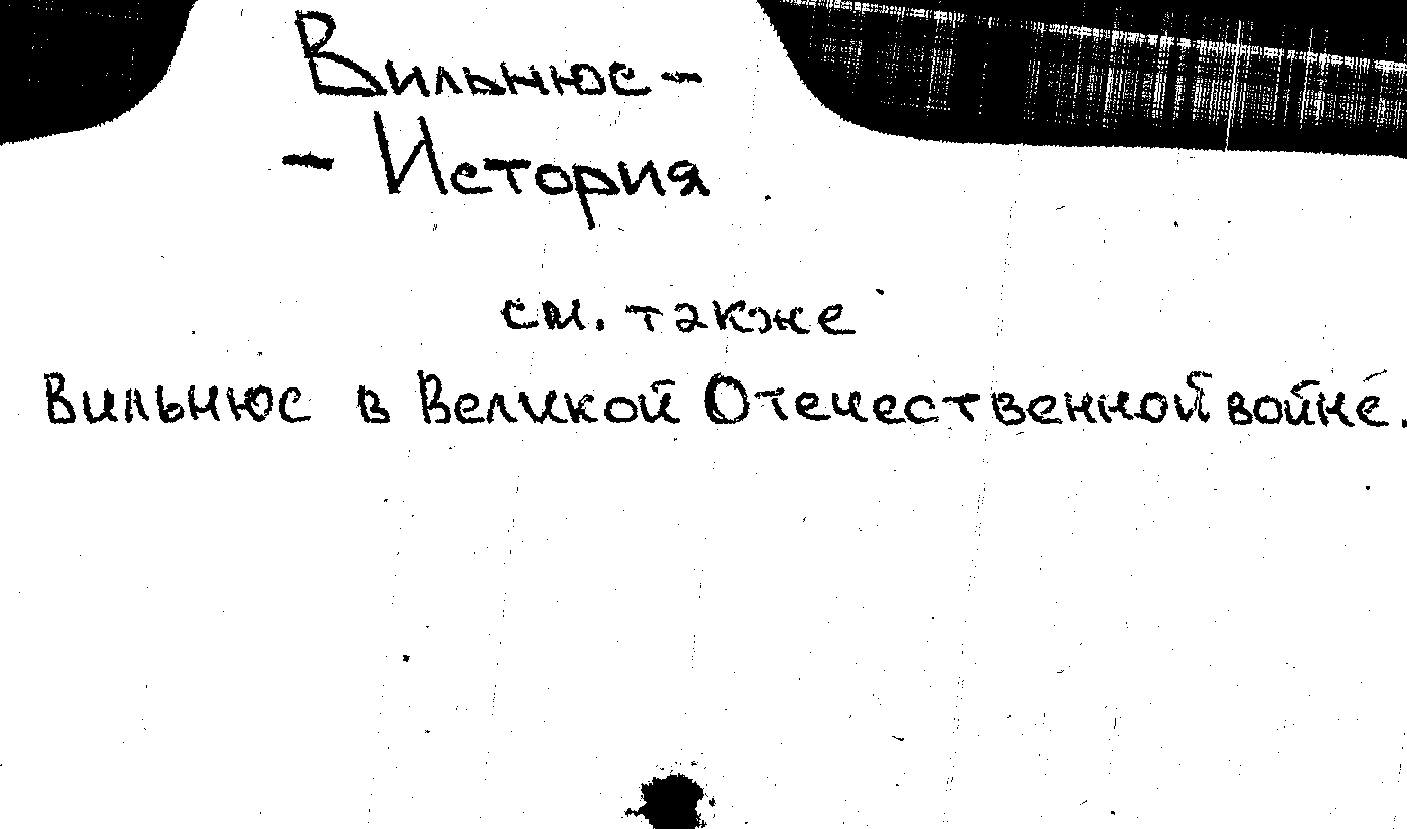 Вильнюс -
- История
см. также
Вильнюс в Великой Отечественной войне.